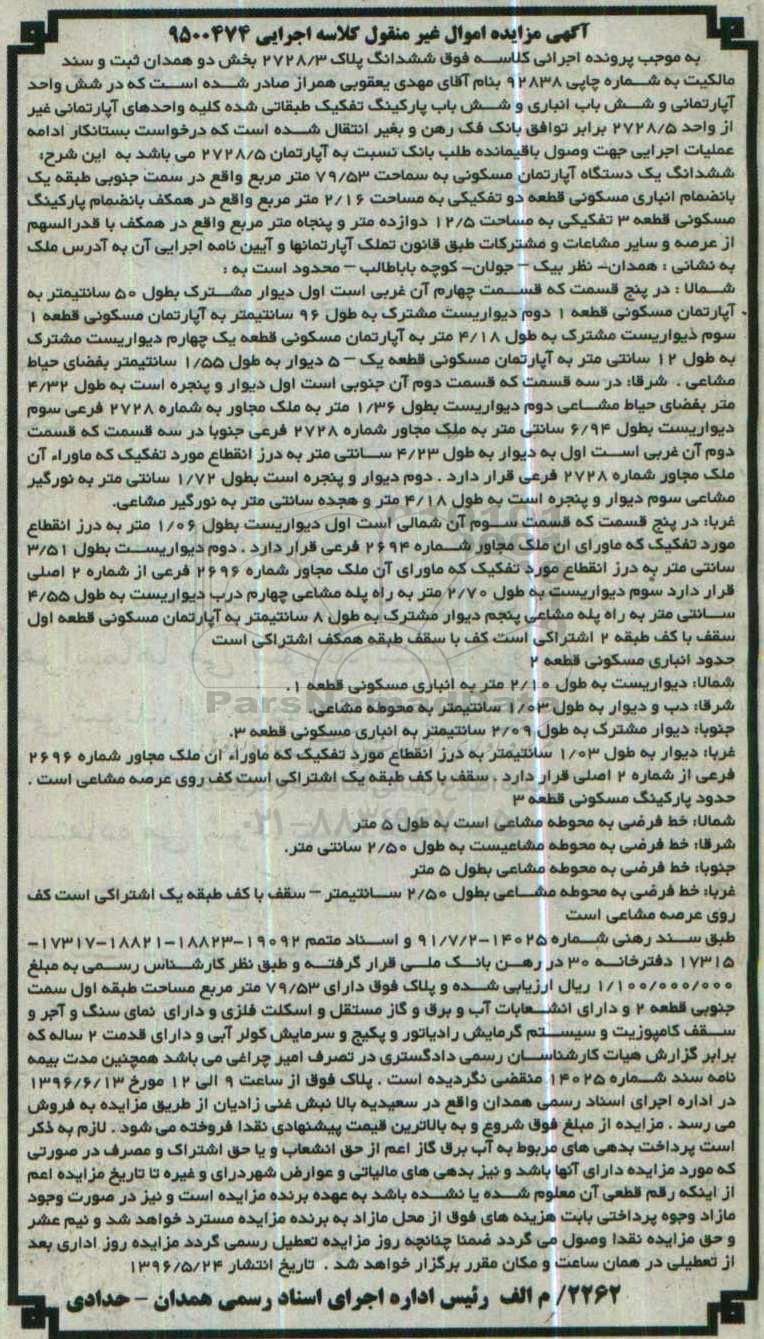 آگهی مزایده اموال غیر منقول کلاسه اجرایی ۹۵۰۰۴۷۴
به موجب پرونده اجرائی کلاسه فوق ششدانگ پلاک ۲۷۲۸/۳ بخش دو همدان ثبت و سند
مالکیت به شماره چاپی ۹۲۸۳۸ بنام آقای مهدی یعقوبی همراز صادر شده است که در شش واحد
آپارتمانی و شش باب انباری و شش باب پارکینگ تفکیک طبقاتی شده کلیه واحدهای آپارتمانی غیر
از واحد ۲۷۲۸/۵ برابر توافق بانک فک رهن و بغیر انتقال شده است که درخواست بستانکار ادامه
عملیات اجرایی جهت وصول باقیمانده طلب بانک نسبت به آپارتمان ۲۷۲۸/۵ می باشد به این شرح:
ششدانگ یک دستگاه آپارتمان مسکونی به سماحت ۷۹/۵۳ متر مربع واقع در سمت جنوبی طبقه یک
بانضمام انباری مسکونی قطعه دو تفکیکی به مساحت ۲/۱۶ متر مربع واقع در همکف بانضمام پارکینگ
مسکونی قطعه ۳ تفکیکی به مساحت ۱۲/۵ دوازده متر و پنجاه متر مربع واقع در همکف با قدرالسهم
از عرصه و سایر مشاعات و مشترکات طبق قانون تملک آپارتمانها و آیین نامه اجرایی آن به آدرس ملک
به نشانی : همدان- نظر بیک – جولان- کوچه باباطالب – محدود است به :
شمالا : در پنج قسمت که قسمت چهارم آن غربی است اول دیوار مشترک بطول ۵۰ سانتیمتر به
آپارتمان مسکونی قطعه ۱ دوم دیواریست مشترک به طول ۹۶ سانتیمتر به آپارتمان مسکونی قطعه ۱
سوم ذیواریست مشترک به طول ۴/۱۸ متر به آپارتمان مسکونی قطعه یک چهارم دیواریست مشترک
به طول ۱۲ سانتی متر به آپارتمان مسکونی قطعه یک – ۵ دیوار به طول ۱/۵۵ سانتیمتر بفضای حیاط
مشاعی . شرقا: در سه قسمت که قسمت دوم آن جنوبی است اول دیوار و پنجره است به طول ۴/۳۲
متر بفضای حیاط مشاعی دوم دیواریست بطول ۱/۳۶ متر به ملک مجاور به شماره ۲۷۲۸ فرعی سوم
دیواریست بطول ۶/۹۴ سانتی متر به ملک مجاور شماره ۲۷۲۸ فرعی جنوبا در سه قسمت که قسمت
دوم آن غربی است اول به دیوار به طول ۴/۲۳ سانتی متر به درز انقطاع مورد تفکیک که ماوراء آن
ملک مجاور شماره ۲۷۲۸ فرعی قرار دارد . دوم دیوار و پنجره است بطول ۱/۷۲ سانتی متر به نورگیر
مشاعی سوم دیوار و پنجره است به طول ۴/۱۸ متر و هجده سانتی متر به نورگیر مشاعی.
غربا: در پنج قسمت که قسمت سوم آن شمالی است اول دیواریست بطول ۱/۰۶ متر به درز انقطاع
مورد تفکیک که ماورای ان ملک مجاور شماره ۲۶۹۴ فرعی قرار دارد . دوم دیواریست بطول ۳/۵۱
سانتی متر به درز انقطاع مورد تفکیک که ماورای آن ملک مجاور شماره ۲۶۹۶ فرعی از شماره ۲ اصلی
قرار دارد سوم دیواریست به طول ۲/۷۰ متر به راه پله مشاعی چهارم درب دیواریست به طول ۴/۵۵
سانتی متر به راه پله مشاعی پنجم دیوار مشترک به طول ۸ سانتیمتر به آپارتمان مسکونی قطعه اول
سقف با کف طبقه ۲ اشتراکی است کف با سقف طبقه همکف اشتراکی است
حدود انباری مسکونی قطعه ۲
شمالا: دیواریست به طول ۲/۱۰ متر به انباری مسکونی قطعه ۱.
شرقا: دب و دیوار به طول ۱/۰۳ سانتیمتر به محوطه مشاعی.
جنوبا: دیوار مشترک به طول ۲/۰۹ سانتیمتر به انباری مسکونی قطعه ۳.
غربا: دیوار به طول ۱/۰۳ سانتیمتر به درز انقطاع مورد تفکیک که ماوراء ان ملک مجاور شماره ۲۶۹۶
فرعی از شماره ۲ اصلی قرار دارد . سقف با کف طبقه یک اشتراکی است کف روی عرصه مشاعی است .
حدود پارکینگ مسکونی قطعه ۳
شمالا: خط فرضی به محوطه مشاعی است به طول ۵ متر
شرقا: خط فرضی به محوطه مشاعیست به طول ۲/۵۰ سانتی متر.
جنوبا: خط فرضی به محوطه مشاعی بطول ۵ متر
غربا: خط فرضی به محوطه مشاعی بطول ۲/۵۰ سانتیمتر – سقف با کف طبقه یک اشتراکی است کف
روی عرصه مشاعی است
طبق سند رهنی شماره ۱۴۰۲۵-۹۱/۷/۲ و اسناد متمم ۱۹۰۹۲-۱۸۸۲۳-۱۸۸۲۱-۱۷۳۱۷-
۱۷۳۱۵ دفترخانه ۳۰ در رهن بانک ملی قرار گرفته و طبق نظر کارشناس رسمی به مبلغ
۱/۱۰۰/۰۰۰/۰۰۰ ریال ارزیابی شده و پلاک فوق دارای ۷۹/۵۳ متر مربع مساحت طبقه اول سمت
جنوبی قطعه ۲ و دارای انشعابات آب و برق و گاز مستقل و اسکلت فلزی و دارای نمای سنگ و آجر و
سقف کامپوزیت و سیستم گرمایش رادیاتور و پکیج و سرمایش کولر آبی و دارای قدمت ۲ ساله که
برابر گزارش هیات کارشناسان رسمی دادگستری در تصرف امیر چراغی می باشد همچنین مدت بیمه
نامه سند شماره ۱۴۰۲۵ منقضی نگردیده است . پلاک فوق از ساعت ۹ الی ۱۲ مورخ ۱۳۹۶/۶/۱۳
در اداره اجرای اسناد رسمی همدان واقع در سعیدیه بالا نبش غنی زادیان از طریق مزایده به فروش
می رسد . مزایده از مبلغ فوق شروع و به بالاترین قیمت پیشنهادی نقدا فروخته می شود . لازم به ذکر
است پرداخت بدهی های مربوط به آب برق گاز اعم از حق انشعاب و یا حق اشتراک و مصرف در صورتی
که مورد مزایده دارای آنها باشد و نیز بدهی های مالیاتی و عوارض شهردرای و غیره تا تاریخ مزایده اعم
از اینکه رقم قطعی آن معلوم شده یا نشده باشد به عهده برنده مزایده است و نیز در صورت وجود
مازاد وجوه پرداختی بابت هزینه های فوق از محل مازاد به برنده مزایده مسترد خواهد شد و نیم عشر
و حق مزایده نقدا وصول می گردد ضمنا چنانچه روز مزایده تعطیل رسمی گردد مزایده روز اداری بعد
از تعطیلی در همان ساعت و مکان مقرر برگزار خواهد شد . تاریخ انتشار ۱۳۹۶/۵/۲۴
۲۲۶۲/ م الف رئیس اداره اجرای اسناد رسمی همدان – حدادی